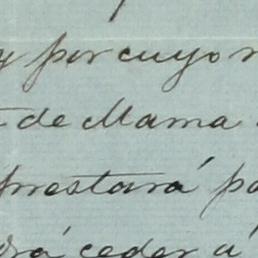 y por cuyo
de Mama
prestará
ceder á